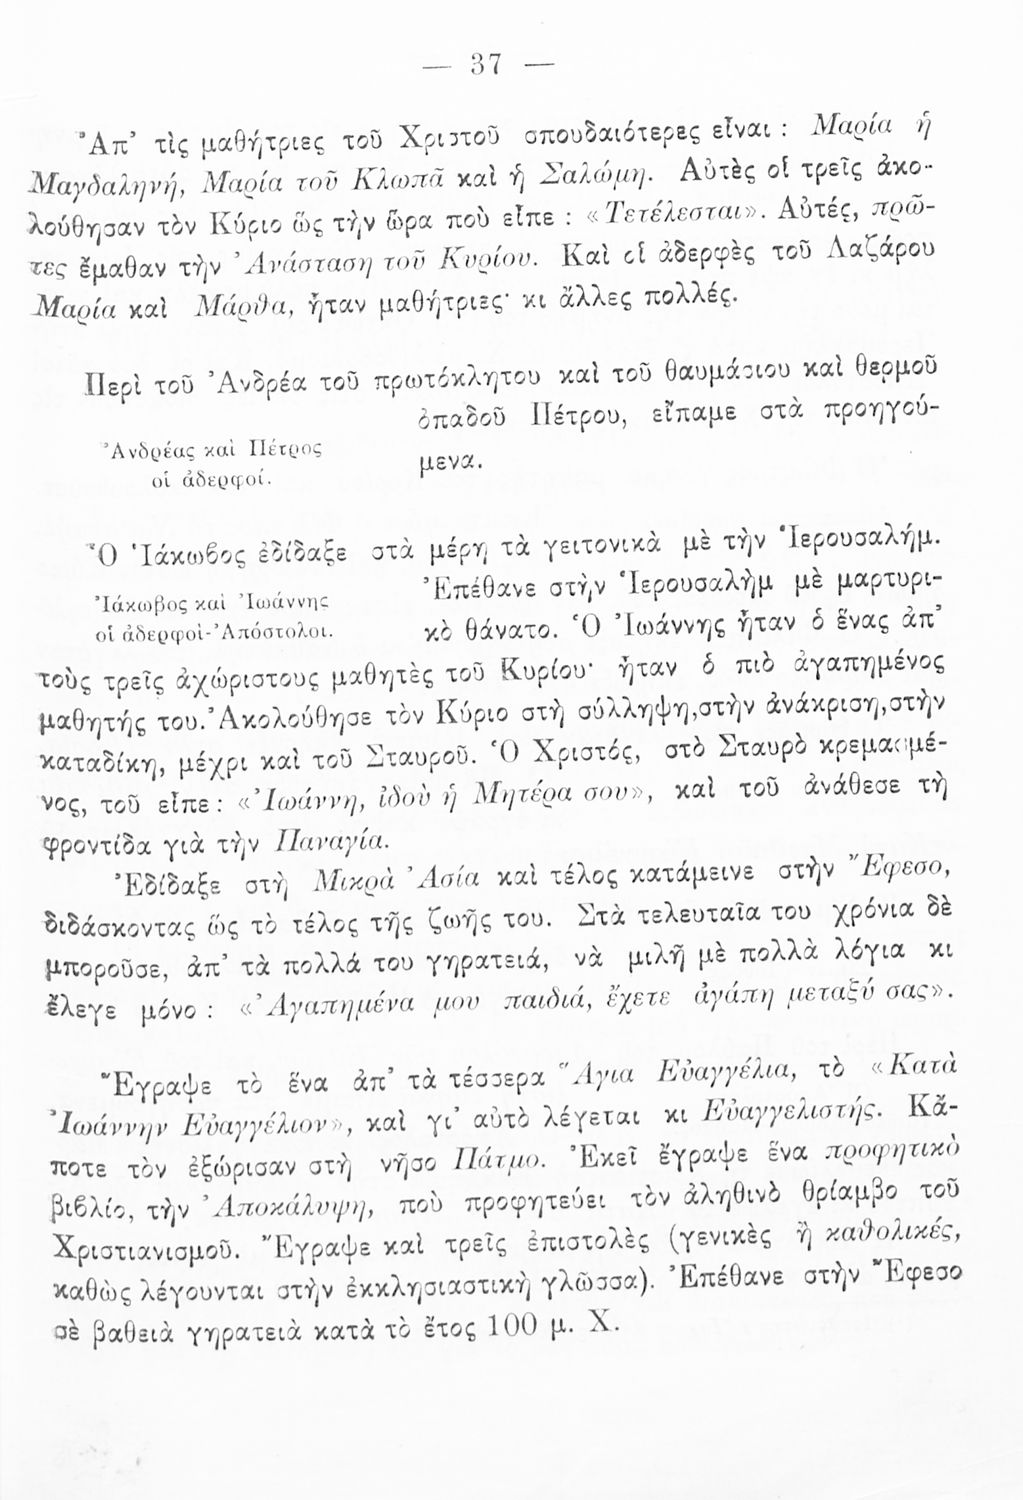 — 37 —
Ἀπ’ τὶς μαθήτριες τοῦ Χριστοῦ σπουδαιότερες εἶναι : Μαρία ἡ
Μαγδαληνή, Μαρία τοῦ Κλωπᾶ καὶ ἡ Σαλώμη. Αὐτὲς οἱ τρεῖς ἀκο-
λούθησαν τὸν Κύριο ὥς τὴν ὥρα ποὺ εἶπε : «Τετέλεσται». Αὐτές, πρῶ-
τες ἔμαθαν τὴν Ἀνάσταση τοῦ Κυρίου. Καὶ οἱ ἀδερφὲς τοῦ Λαζάρου
Μαρία καὶ Μάρθα, ἦταν μαθήτριες· κι ἄλλες πολλές.
Περὶ τοῦ Ἀνδρέα τοῦ πρωτόκλητου καὶ τοῦ θαυμάσιου καὶ θερμοῦ
ὀπαδοῦ Πέτρου, εἴπαμε στὰ προηγού-
μενα.
Ἀνδρέας καὶ Πέτρος
οἱ ἀδερφοί.
Ὁ Ἰάκωβος ἐδίδαξε στὰ μέρη τὰ γειτονικὰ μὲ τὴν Ἱερουσαλήμ.
Ἐπέθανε στὴν Ἱερουσαλὴμ μὲ μαρτυρι-
κὸ θάνατο. Ὁ Ἰωάννης ἦταν ὁ ἕνας ἀπ’
Ἰάκωβος καὶ Ἰωάννης
οἱ ἀδερφοὶ-Ἀπόστολοι.
τοὺς τρεῖς ἀχώριστους μαθητὲς τοῦ Κυρίου· ἦταν ὁ πιὸ ἀγαπημένος
μαθητής του. Ἀκολούθησε τὸν Κύριο στὴ σύλληψη,στὴν ἀνάκριση,στὴν
καταδίκη, μέχρι καὶ τοῦ Σταυροῦ. Ὁ Χριστός, στὸ Σταυρὸ κρεμασμέ-
νος, τοῦ εἶπε : «Ἰωάννη, ἰδοὺ ἡ Μητέρα σου», καὶ τοῦ ἀνάθεσε τὴ
φροντίδα γιὰ τὴν Παναγία.
Ἐδίδαξε στὴ Μικρὰ Ἀσία καὶ τέλος κατάμεινε στὴν Ἔφεσο,
διδάσκοντας ὥς τὸ τέλος τῆς ζωῆς του. Στὰ τελευταῖα του χρόνια δὲ
μποροῦσε, ἀπ’ τὰ πολλά του γηρατειά, νὰ μιλῆ μὲ πολλὰ λόγια κι
ἔλεγε μόνο : «Ἀγαπημένα μου παιδιά, ἔχετε ἀγάπη μεταξύ σας».
Ἔγραψε τὸ ἕνα ἀπ’ τὰ τέσσερα Ἅγια Εὐαγγέλια, τὸ «Κατὰ
Ἰωάννην Εὐαγγέλιον», καὶ γι’ αὐτὸ λέγεται κι Εὐαγγελιστής. Κά-
ποτε τὸν ἐξώρισαν στὴ νῆσο Πάτμο. Ἐκεῖ ἔγραψε ἕνα προφητικὸ
βιβλίο, τὴν Ἀποκάλυψη, ποὺ προφητεύει τὸν ἀληθινὸ θρίαμβο τοῦ
Χριστιανισμοῦ. Ἔγραψε καὶ τρεῖς ἐπιστολὲς (γενικὲς ἢ καθολικές,
καθὼς λέγουνται στὴν ἐκκλησιαστικὴ γλῶσσα). Ἐπέθανε στὴν Ἔφεσο
σὲ βαθειὰ γηρατειὰ κατὰ τὸ ἔτος 100 μ. Χ.